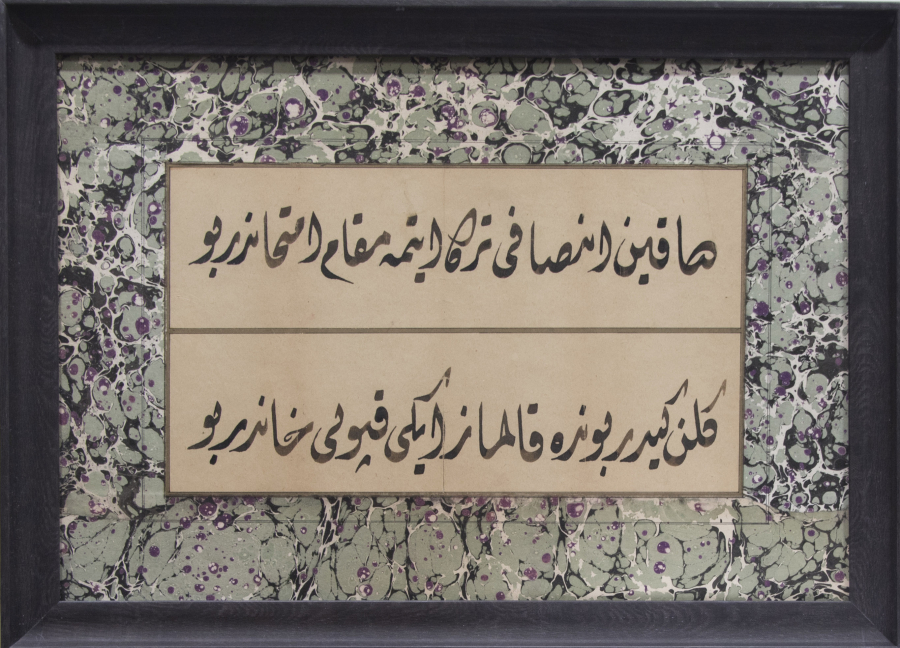 صاقین انصافی ترك ایتمه مقام امتحاندر بو
کلن کیدر بونده قالماز ایکی قپولی خاندر بو